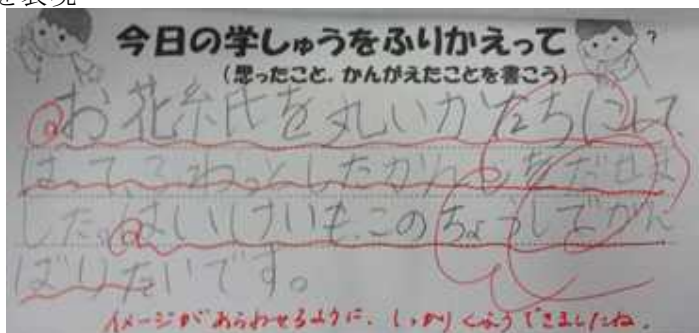 を表現
今日の学しゅうをふりかえって
(思ったこと、かんがえたことを書こう)
お花糸氏を丸いかたちにして、
はって、こねっとしたかんじをだせま
した。はいけいも、このちょうしでがん
ばりたいです。
イメージがあらわせるように、しっかりくふうできましたね。